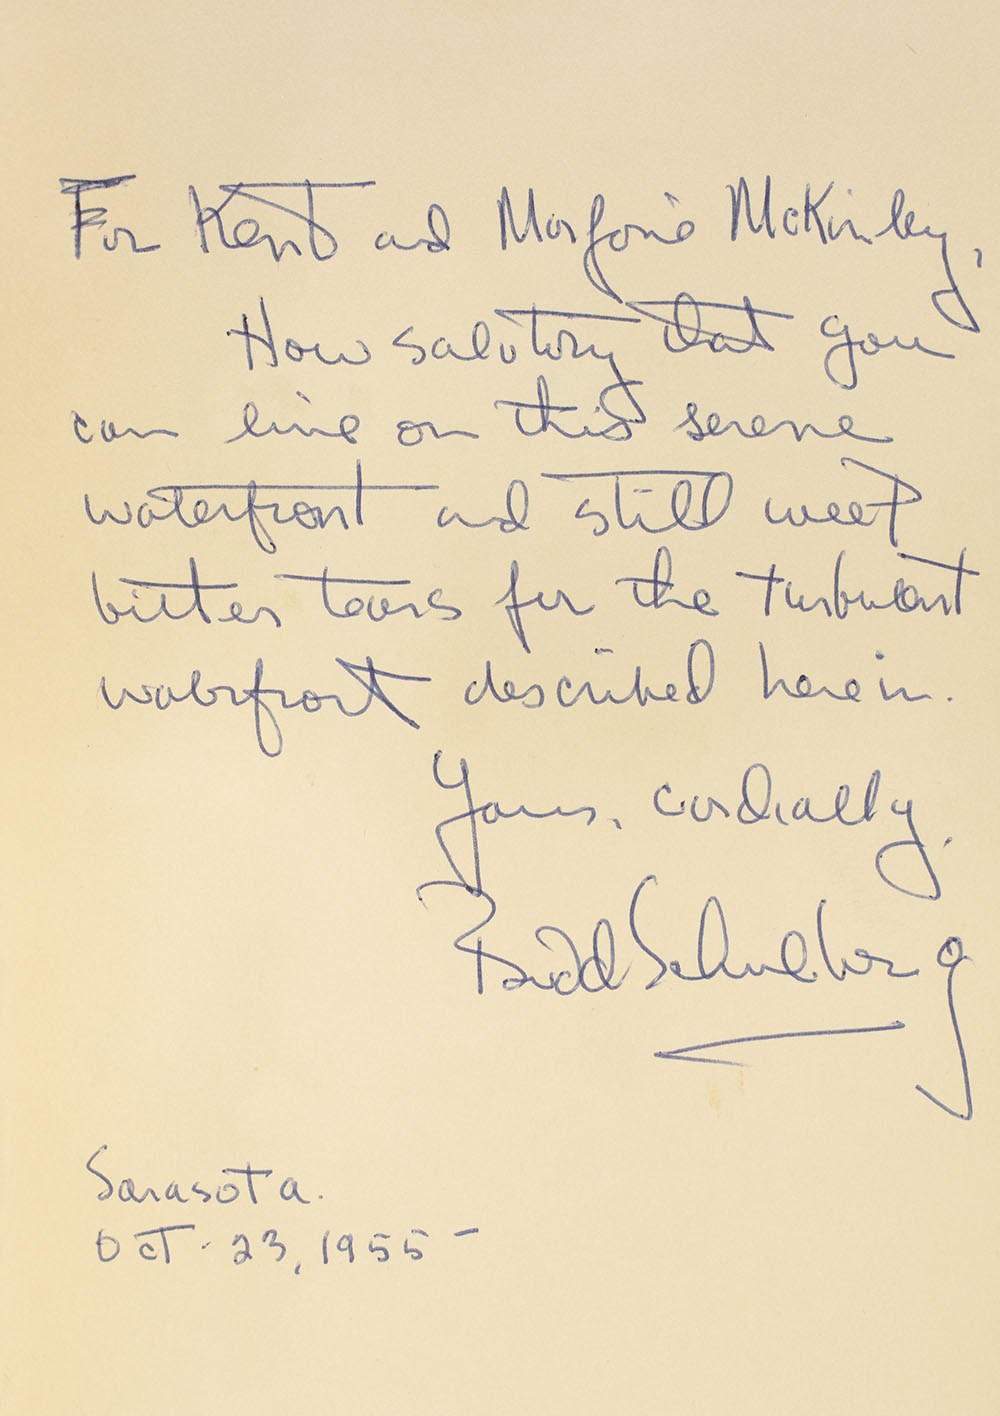 For Kent and Marjorie McKinley,
How salutory that you
can live on this serene
waterfront and still weep
bitter tears for the turbulent
waterfront described herein.
Yours, cordially,
Budd Schulberg
Sarasota.
Oct. 23, 1955–